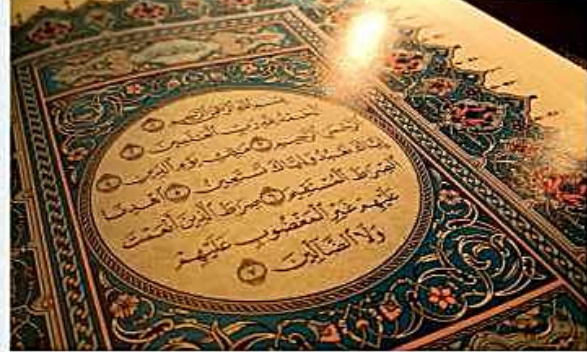 بِسْمِ اللَّهِ الرَّحْمَٰنِ الرَّحِيمِ ۝١
الْحَمْدُ لِلَّهِ رَبِّ الْعَالَمِينَ ۝٢
الرَّحْمَٰنِ الرَّحِيمِ ۝٣ مَالِكِ يَوْمِ الدِّينِ ۝٤
إِيَّاكَ نَعْبُدُ وَإِيَّاكَ نَسْتَعِينُ ۝٥ اهْدِنَا
الصِّرَاطَ الْمُسْتَقِيمَ ۝٦ صِرَاطَ الَّذِينَ أَنْعَمْتَ
عَلَيْهِمْ غَيْرِ الْمَغْضُوبِ عَلَيْهِمْ
وَلَا الضَّالِّينَ ۝٧